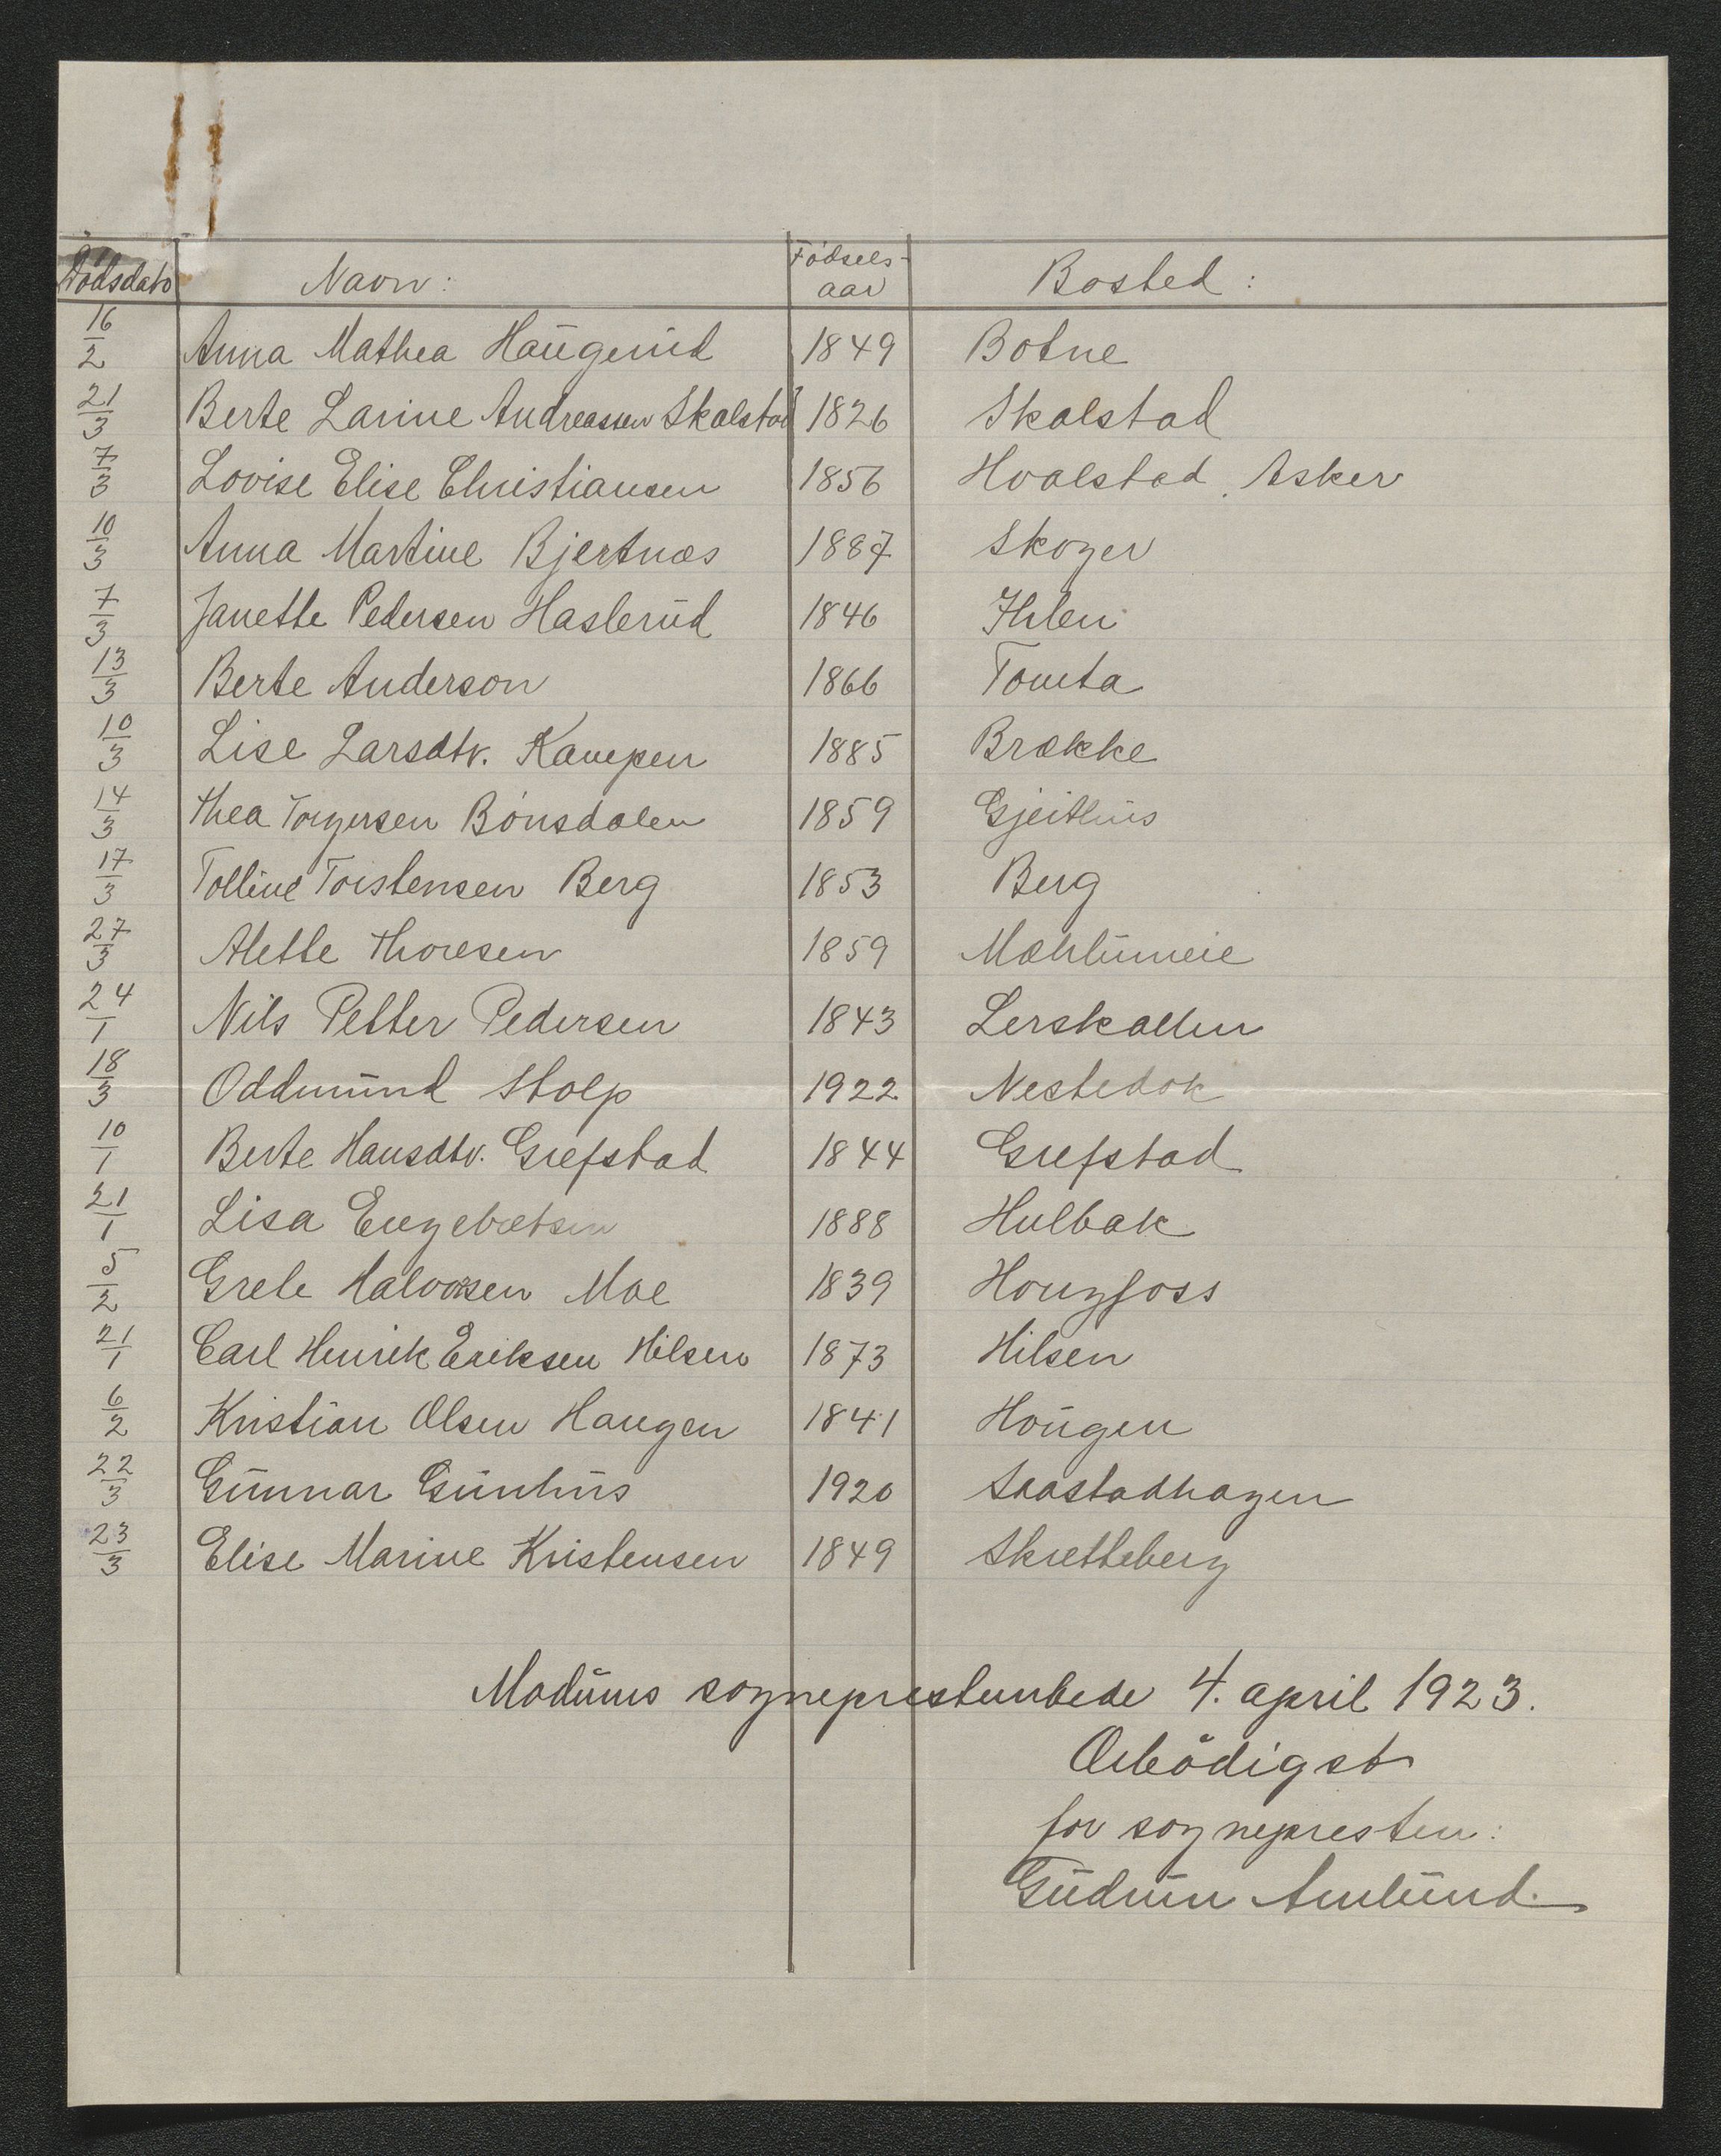 Dødsdato Navn: Fødsels-aar Bosted:
16/2 Anna Mathea Haugerud 1849 Botne
21/3 Berte Larine Andreassen Skalstad 1826 Skalstad
7/3 Lovise Elise Christiansen 1856 Hvalstad, Asker
10/3 Anna Martine Bjertnæs 1887 Skoger
7/3 Janette Pedersen Haslerud 1846 Ihlen
13/3 Berte Anderson 1866 Tomta
10/3 Lise Larsdtr. Kampen 1885 Brække
14/3 Thea Torgersen Bönsdalen 1859 Gjeithus
17/3 Tolline Torstensen Berg 1853 Berg
27/3 Alette Thoresen 1859 Mæhlumeie
24/1 Nils Petter Pedersen 1843 Lerskallen
18/3 Oddmund Stolp 1922
10/1 Berte Hansdtr. Grefstad 1844 Grefstad
21/1 Lisa Engebretsen 1888 Hulbak
5/2 Grete Halvorsen Moe 1839 Hougfoss
21/1 Carl Henrik Eriksen Hilsen 1873 Hilsen
6/2 Kristian Olsen Haugen 1841 Hougen
22/3 Gunnar Gunhus 1920 Saastadhagen
23/3 Elise Marine Kristensen 1849 Skretteberg
Modums sogneprestembede 4. april 1923.
Ærbödigst
for sognepresten:
Gudrun Amlund.